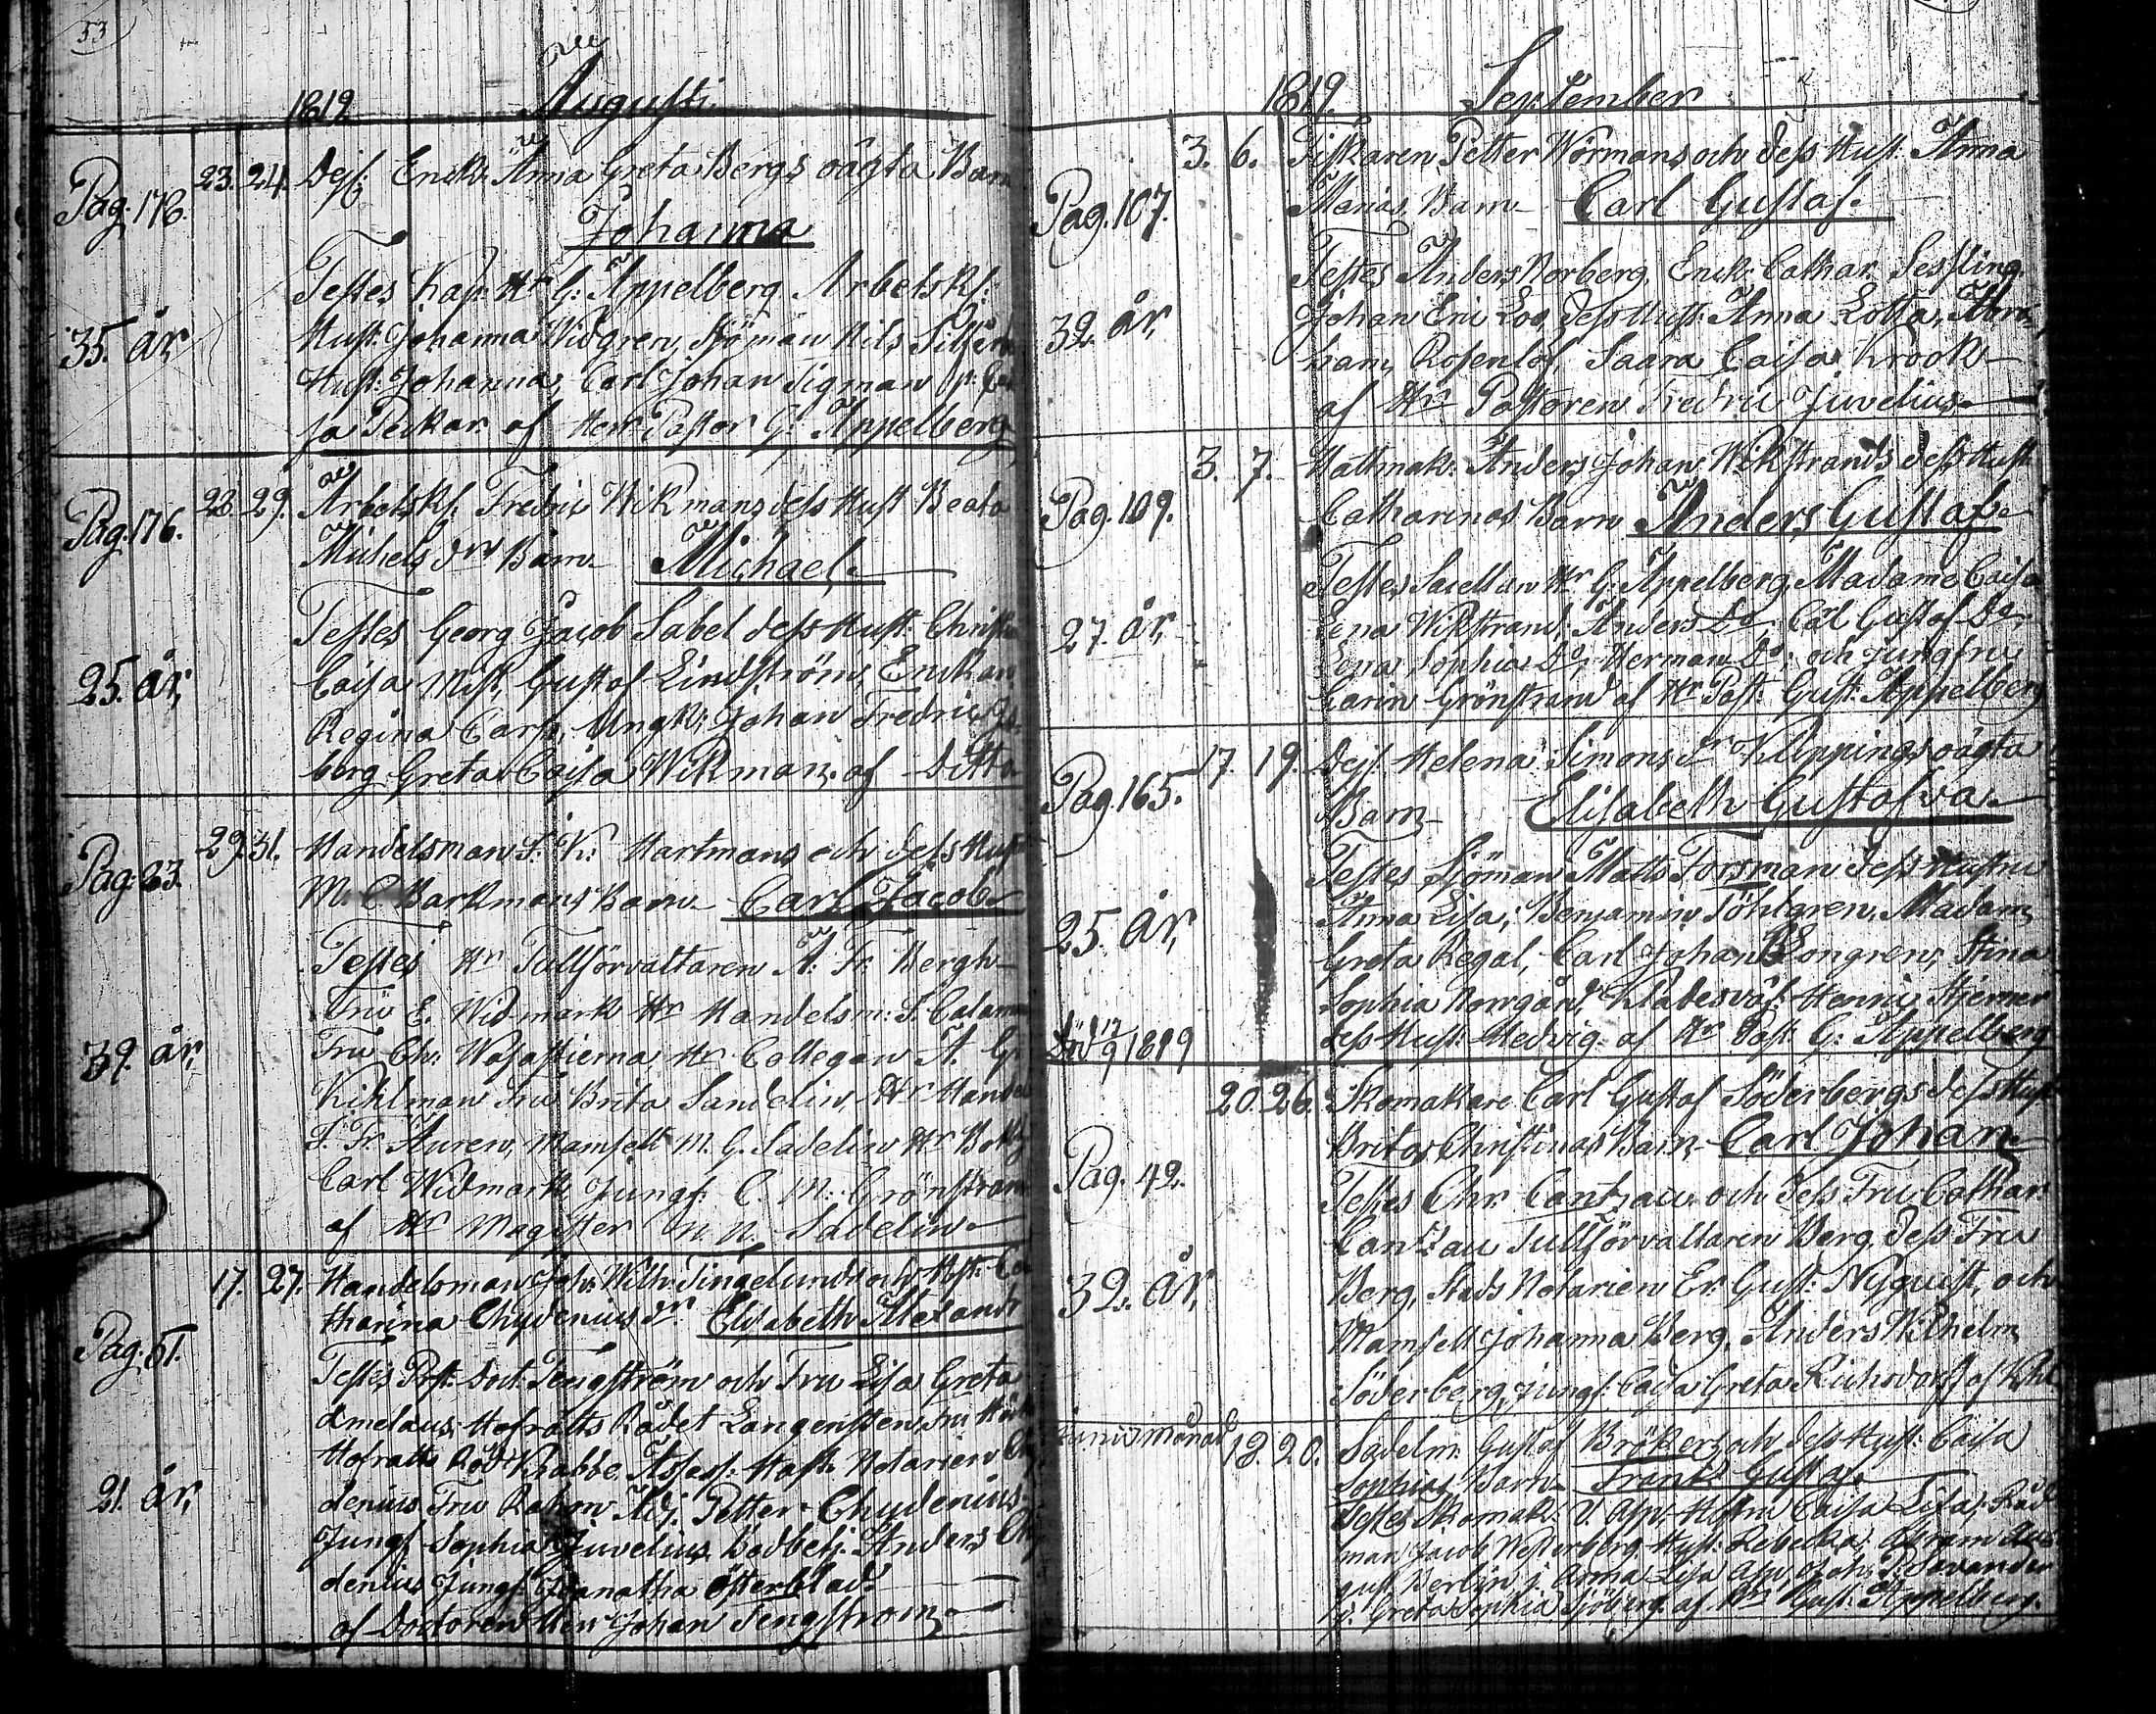 53
1819 Augusti
Pag. 176. 23. 24. Dejf. Enck. Anna Greta Bergs oägta Barn
Johanna
Testes Kap. Hr G: Appelberg Arbetskl:
35. år, Hust. Johanna Widgren, Sjöman Nils
Hust: Johanna, Carl Johan Sigman
Peckar. af Herr Pastor G: Appelberg
Pag. 176. 28 29. Arbetskl. Fredric Wikmans dess Hust Beata
Michels dr Barn Michael
Testes Georg Jacob Sabel dess Hust. Christ
25. år, Caisa Gustaf Lindström, Enckan
Regina Carp, Ungk: Johan Fredric
berg Greta Caisa Wikman. af Ditto
Pag. 23. 29. 31. Handelsman F. K. Hartmans och dess Hust
M. C. Barkmans Barn Carl Jacob
Testes Hr Tullförvaltaren A. Fr. Bergh
Fru E. Widmark Hr Handelsm:
39. år, Fru Ch. Wasastierna, Hr Collegan A. G.
Kihlman Fru Brita Sandelin, Hr Handel
F. Fr. Auren, Mamsell M. G. Sadelin Hr
Carl Widmark Jungf: C. M. Grönstran
af Hr Magister N. N. Sadelin
17. 27. Handelsman Joh. Wilh. Tingelunds och Hust. Ca
Pag. 51. tharina Chydenius dr Elisabeth Alexandr
Testes Past: Doct. Tengström och Fru Lisa Greta
Hofrätts Rådet Langenstein
Hofrätts Råd Krabbe Assess: Notarien Chy
21. år, denius Fru Petter Chydenius
Jungf. Sophia Juvelius Bodbetj. Anders Chy
denius Jungf: Österblad
af Doctoren Herr Johan Tengström
1819. September
Pag. 107. 3. 6. Fiskaren Petter Wörmans och dess Hust: Anna
Marias Barn Carl Gustaf
Testes Anders Norberg, Enck: Cathar. Sessling
32 år, Johan Eric Loo, dess Hust: Anna Lotta, Abra
ham Rosenlöf, Saara Caisa Krook
af Hr Pastoren Fredric Juvelius
Pag. 109. 3. 7. Hattmak: Anders Johan Wikstrands dess Hust
Catharinas Barn Anders Gustaf
Testes, Sacellan Hr G: Appelberg, Madame Caisa
27. år, Lena Wikstrand, Anders Do, Carl Gustaf Do
Lena Sophia Do, Herman Do, och Jungfru
Carin Grönstrand af Hr Past: Gust: Appelberg
Pag. 165. 17. 19. Dejf. Helena Simons dr Kippings oägta
Barn Elisabeth Gustafva
Testes Sjöman Matts Forsman dess Hustru
25. år, Anna Lisa, Benjamin Föhlgren, Madam
Greta Regal, Carl Johan Longren, Stina
Sophia Norrgård, Henric Stjerner
Död 17/9 1819 dess Hust: Hedvig af Hr Past. G: Appelberg
20. 26. Skomakare Carl Gustaf Söderbergs dess Hust
Pag. 42. Brita Christinas Barn Carl Johan
Testes Chr. Cantzau och dess Fru Cathar
Cantzau Tullförvaltaren Berg dess Fru
32. år, Berg, Stads Notarien Er. Gust: Nyquist, och
Mamsell Johanna Berg, Anders Wilhelm
Söderberg, Jungf: Caisa Greta Richsdorff af
Junii månad 18. 20. Sadelm. Gustaf Brökers och dess Hust: Caisa
Sophias Barn Frants Gustaf
Testes Skomak: Hustru Caisa Lisa, Råd
man Jacob Westerberg Hust: Rebecka,
gust Berlin j. Anna Lisa
j. Greta Sophia Sjöberg. af Hr Gust: Appelberg.